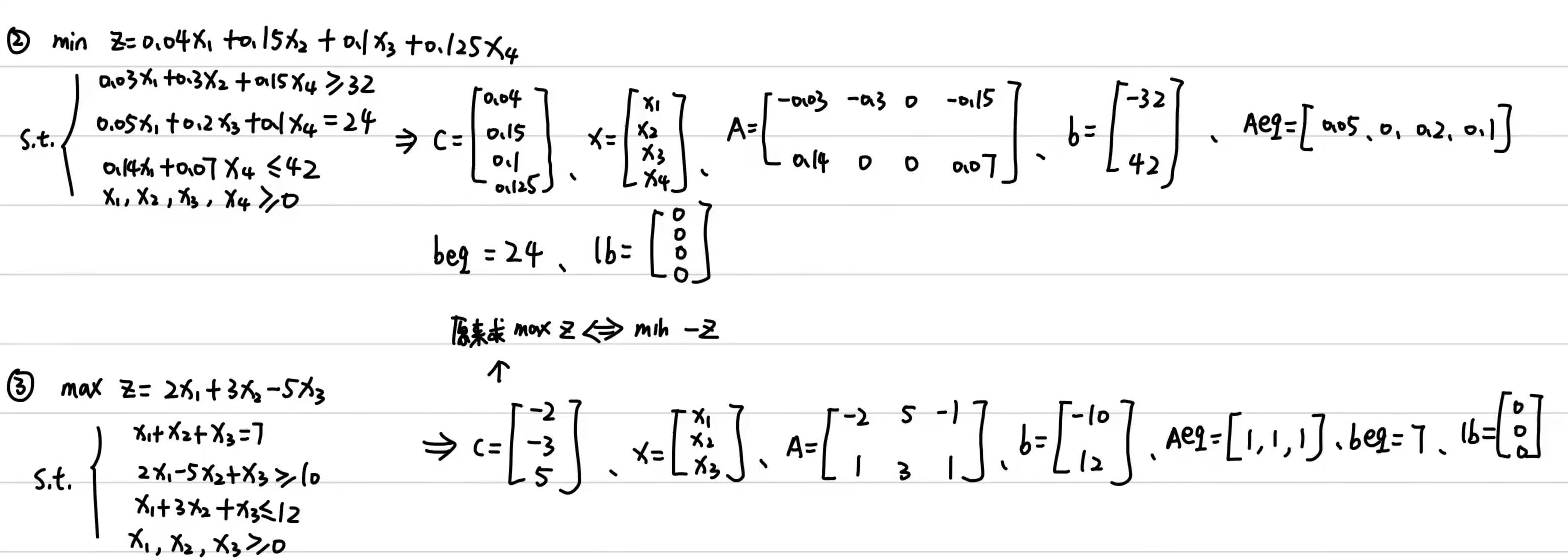 ② min z=0.04x₁+0.15x₂+0.1x₃+0.125x₄
s.t. { 0.03x₁+0.3x₂+0.15x₄≥32
0.05x₁+0.2x₃+0.1x₄=24
0.14x₁+0.07x₄≤42
x₁,x₂,x₃,x₄≥0
⇒ C=[0.04; 0.15; 0.1; 0.125]、 x=[x₁; x₂; x₃; x₄]、 A=[-0.03 -0.3 0 -0.15; 0.14 0 0 0.07]、 b=[-32; 42]、 Aeq=[0.05、0, 0.2, 0.1]
beq=24、 lb=[0; 0; 0; 0]
原来求 max z ⇔ min -z
↑
③ max z=2x₁+3x₂-5x₃
s.t. { x₁+x₂+x₃=7
2x₁-5x₂+x₃≥10
x₁+3x₂+x₃≤12
x₁,x₂,x₃≥0
⇒ C=[-2; -3; 5]、 x=[x₁; x₂; x₃]、 A=[-2 5 -1; 1 3 1]、 b=[-10; 12]、 Aeq=[1,1,1]、 beq=7、 lb=[0; 0; 0]